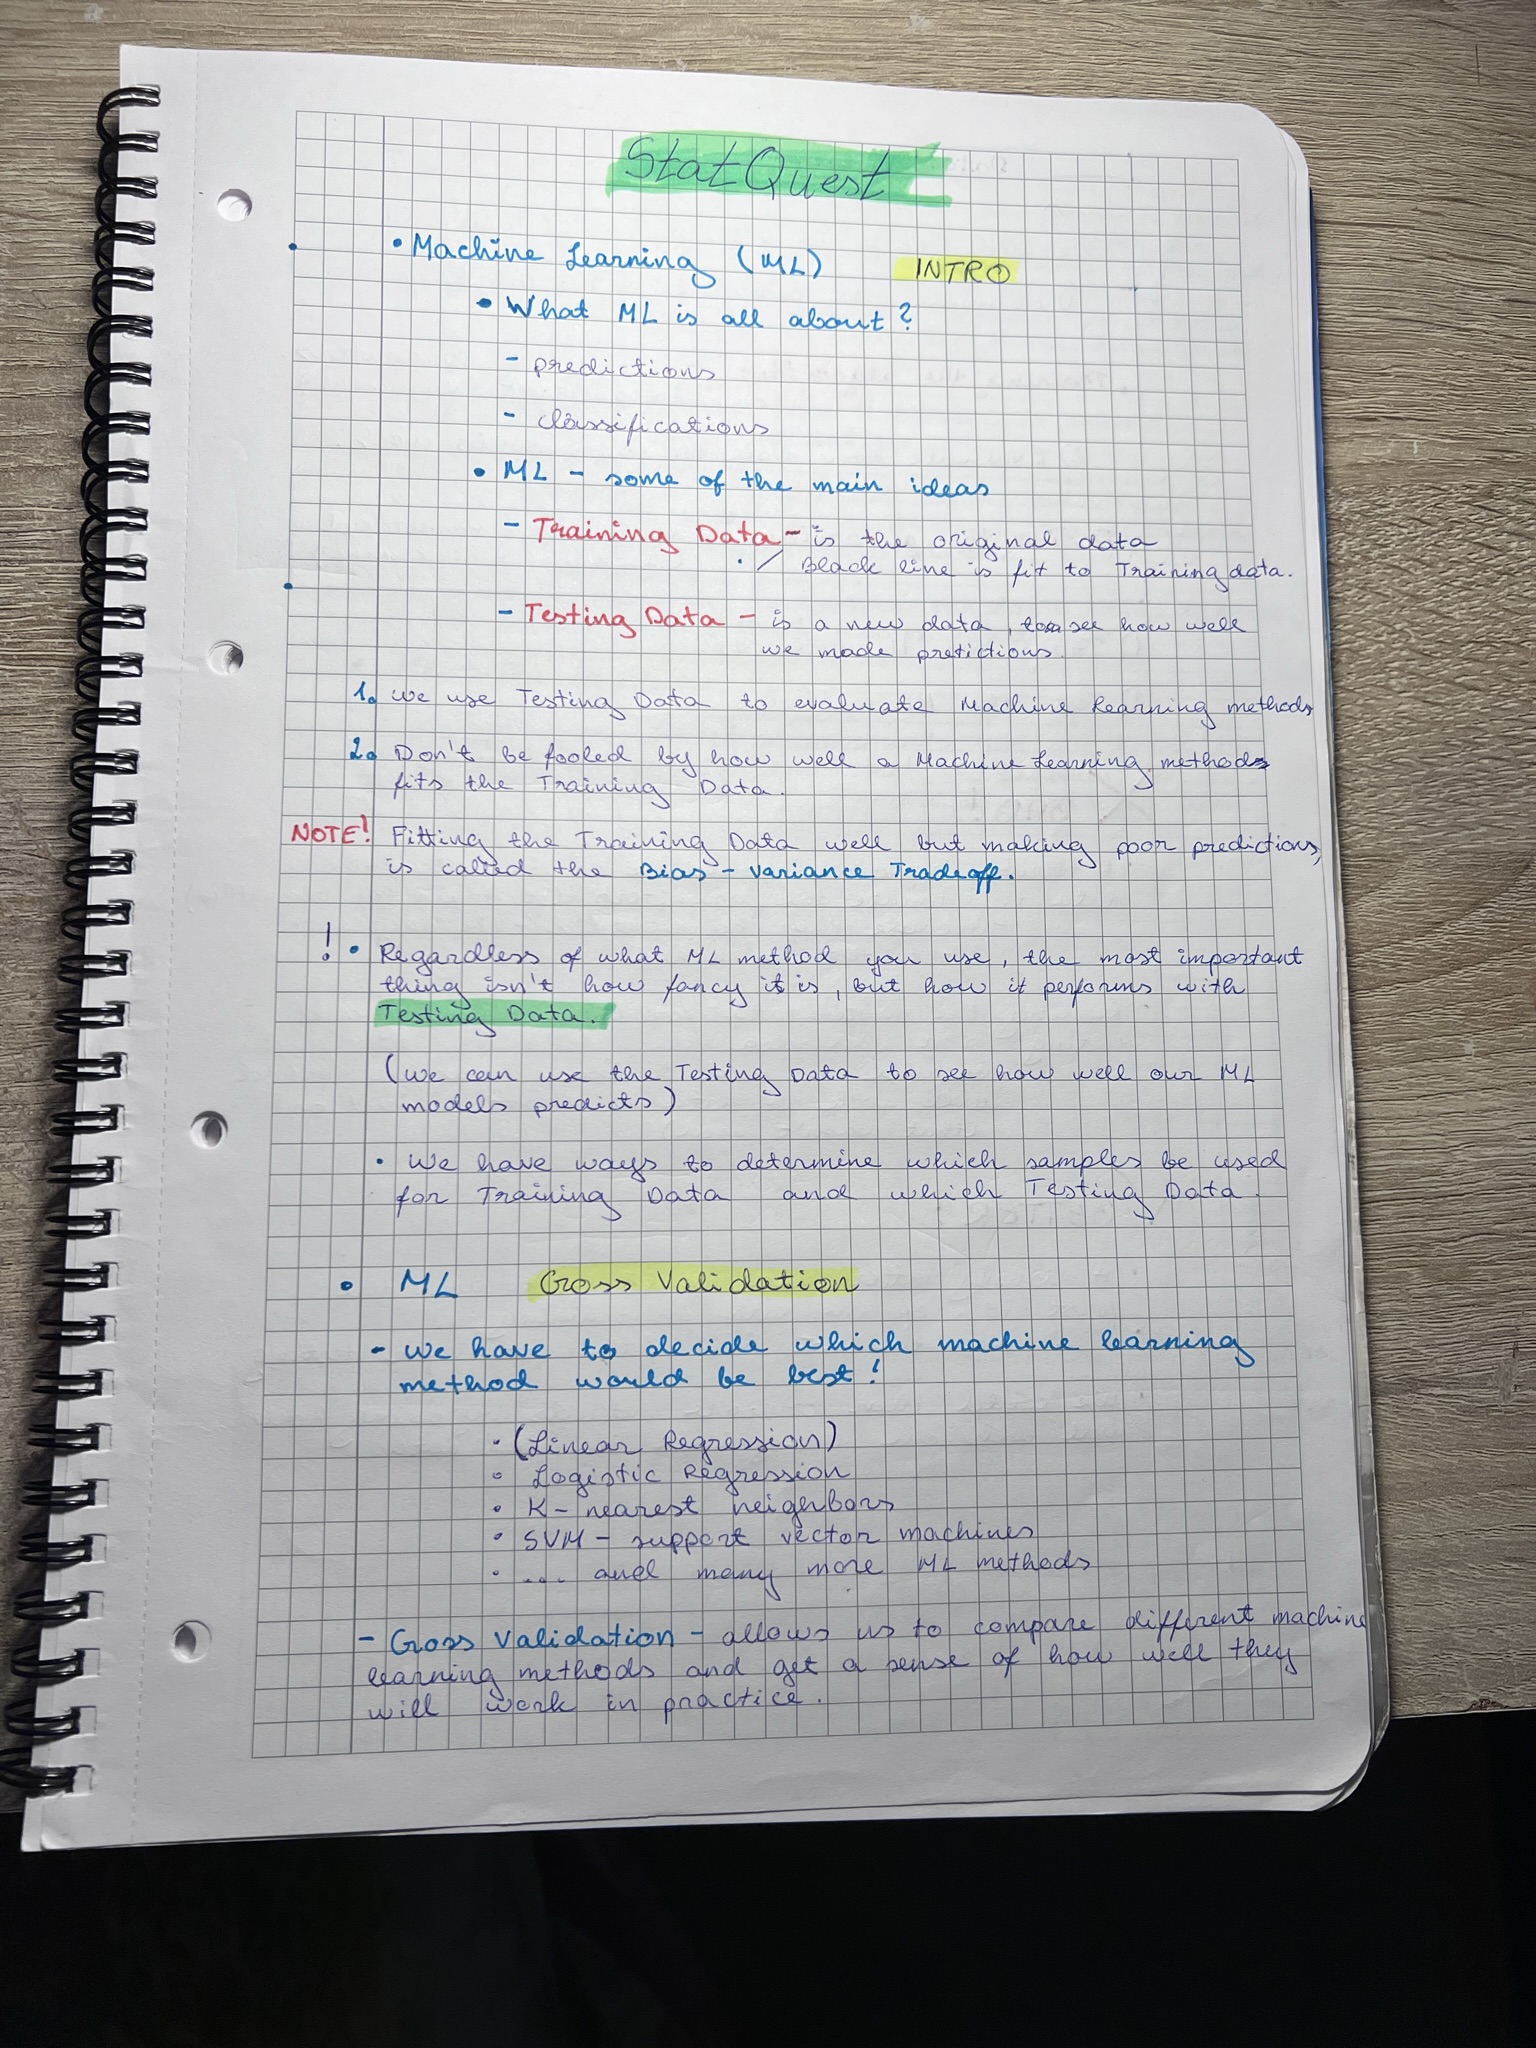 StatQuest
• Machine Learning (ML) INTRO
• What ML is all about?
- predictions
- classifications
• ML - some of the main ideas
- Training Data - is the original data
Black line is fit to Training data.
- Testing Data - is a new data, to see how well
we made pretictions.
1. We use Testing Data to evaluate Machine Learning methods
2. Don't be fooled by how well a Machine Learning methods
fits the Training Data.
NOTE! Fitting the Training Data well but making poor predictions,
is called the Bias - Variance Tradeoff.
! • Regardless of what ML method you use, the most important
thing isn't how fancy it is, but how it performs with
Testing Data.
(We can use the Testing Data to see how well our ML
models predicts)
• We have ways to determine which samples be used
for Training Data and which Testing Data
• ML Cross Validation
- We have to decide which machine learning
method would be best!
• (Linear Regression)
• Logistic Regression
• K-nearest neighbors
• SVM - support vector machines
• .... and many more ML methods
- Cross Validation - allows us to compare different machine
learning methods and get a sense of how well they
will work in practice.